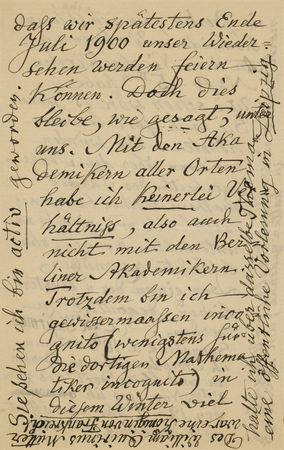 dass wir spätestens Ende
Juli 1900 unser Wieder-
sehen werden feiern
können. Doch dies
bleibe, wie gesagt, unter
uns. Mit den Aka
demikern aller Orten
habe ich keinerlei Ver
hältniss, also auch
nicht mit den Ber
liner Akademikern.
Trotzdem bin ich
gewissermaassen incog
nito (wenigstens für
die dortigen Mathema
tiker incognito) in
diesem Winter viel
Sie sehen ich bin activ geworden.
halte nun über dasselbe Thema
eine öffentliche Vorlesung in Leipzig
Des William Quirinus Mutter
war eine Königin von Frankreich